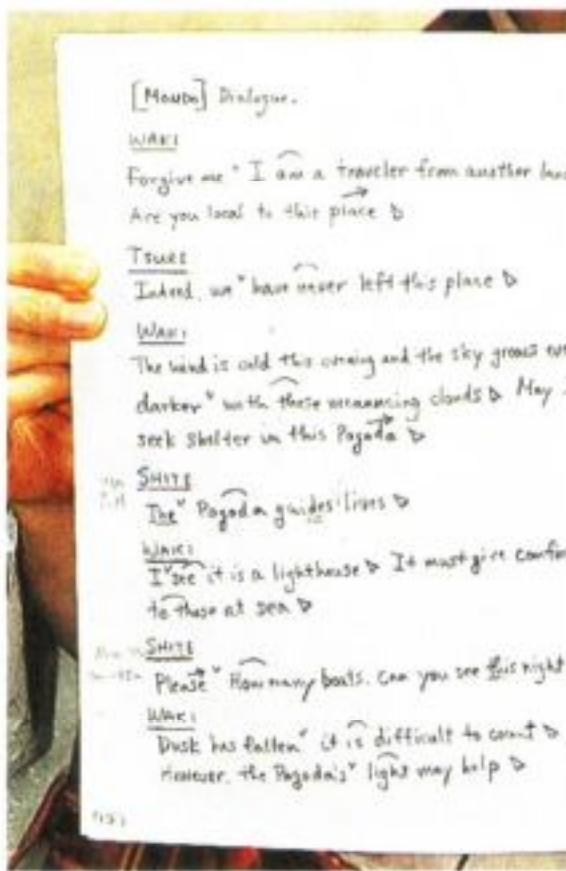 [Mondo] Dialogue.
WAKI
Forgive me I am a traveler from another
Are you local to this place
TSURE
Indeed. we have never left this place
WAKI
The wind is cold this evening and the sky grows
darker with these menancing clouds May
seek shelter in this Pagoda
SHITE
The Pagoda guides lives
WAKI
I see it is a lighthouse It must give
to those at sea
SHITE
Please How many boats. Can you see this night
WAKI
Dusk has fallen it is difficult to count
However, the Pagoda's light may help